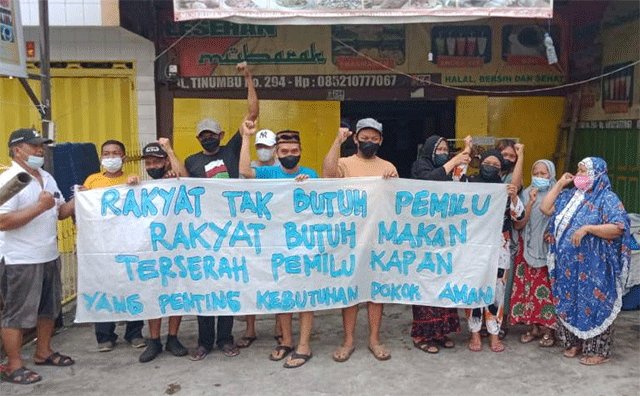 mubarak
JL. TINUMBU No. 294 - Hp : 085210777067
HALAL, BERSIH DAN SEHAT
RAKYAT TAK BUTUH PEMILU
RAKYAT BUTUH MAKAN
TERSERAH PEMILU KAPAN
YANG PENTING KEBUTUHAN POKOK AMAN